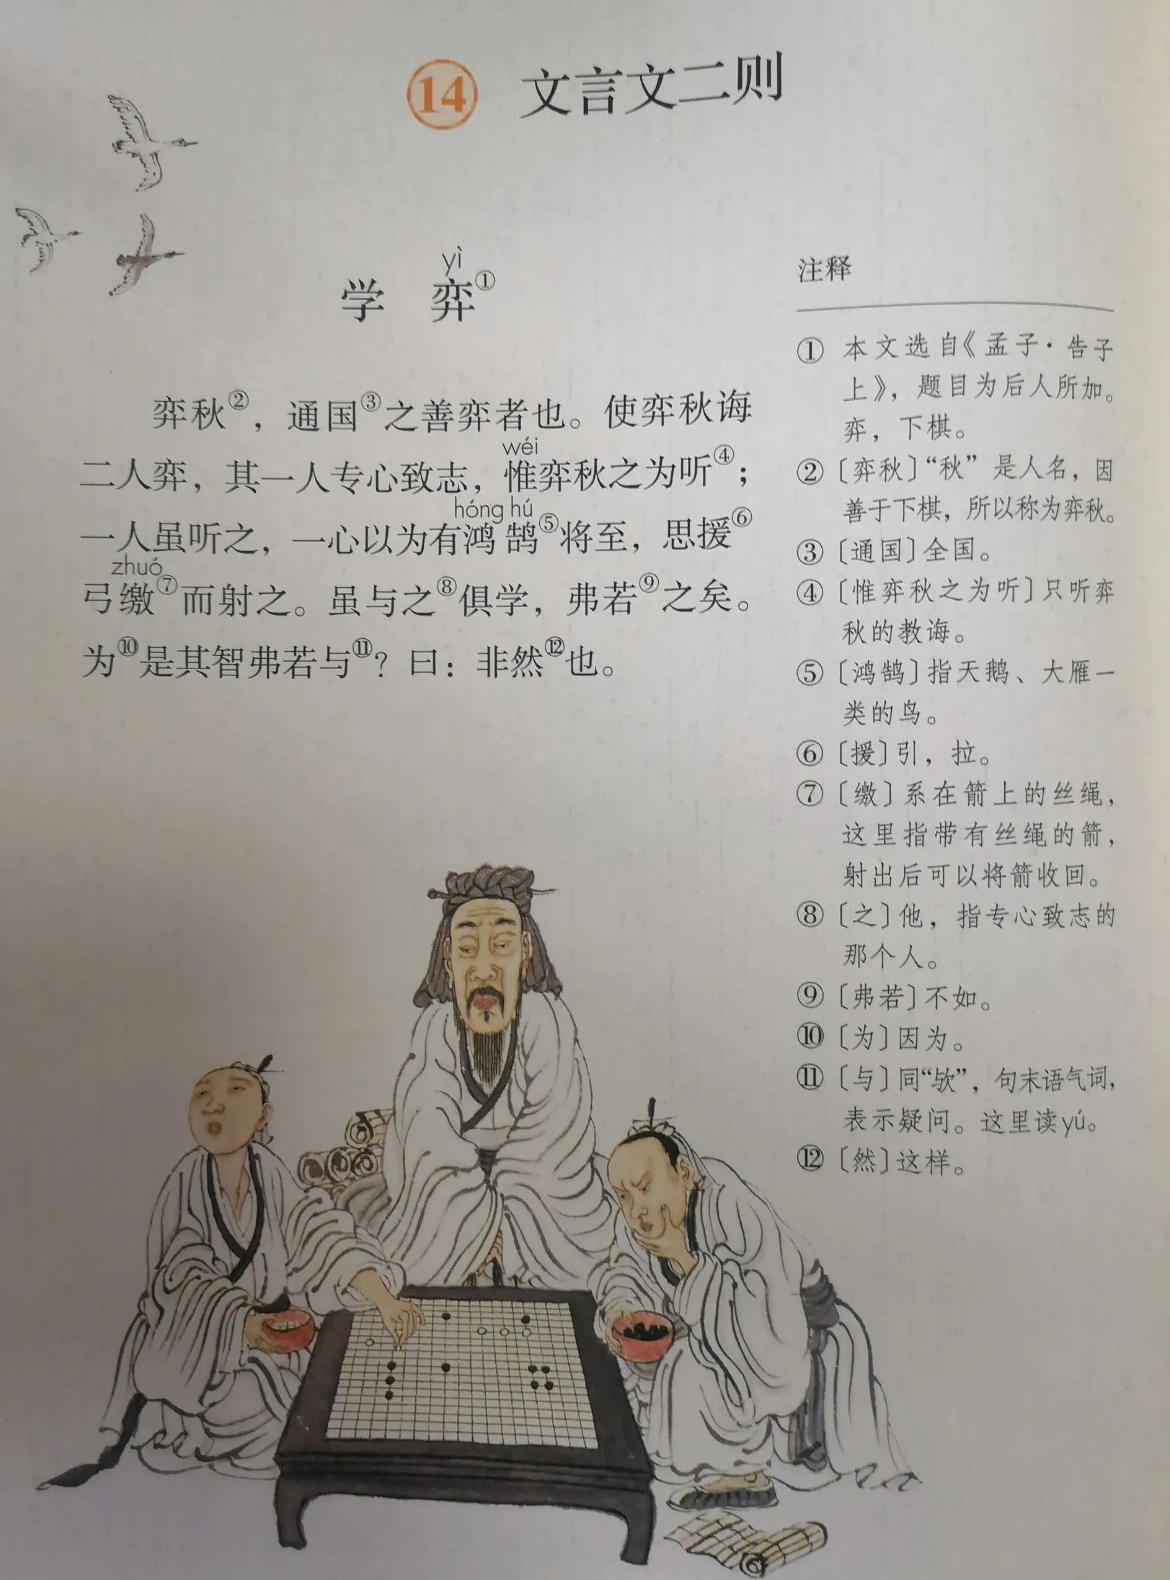 14 文言文二则
yì
学 弈①
弈秋②，通国③之善弈者也。使弈秋诲
wéi
二人弈，其一人专心致志，惟弈秋之为听④；
hóng hú
一人虽听之，一心以为有鸿鹄⑤将至，思援⑥
zhuó
弓缴⑦而射之。虽与之⑧俱学，弗若⑨之矣。
为⑩是其智弗若与⑪？曰：非然⑫也。
注释
① 本文选自《孟子·告子
上》，题目为后人所加。
弈，下棋。
② 〔弈秋〕“秋”是人名，因
善于下棋，所以称为弈秋。
③ 〔通国〕全国。
④ 〔惟弈秋之为听〕只听弈
秋的教诲。
⑤ 〔鸿鹄〕指天鹅、大雁一
类的鸟。
⑥ 〔援〕引，拉。
⑦ 〔缴〕系在箭上的丝绳，
这里指带有丝绳的箭，
射出后可以将箭收回。
⑧ 〔之〕他，指专心致志的
那个人。
⑨ 〔弗若〕不如。
⑩ 〔为〕因为。
⑪ 〔与〕同“欤”，句末语气词，
表示疑问。这里读yú。
⑫ 〔然〕这样。